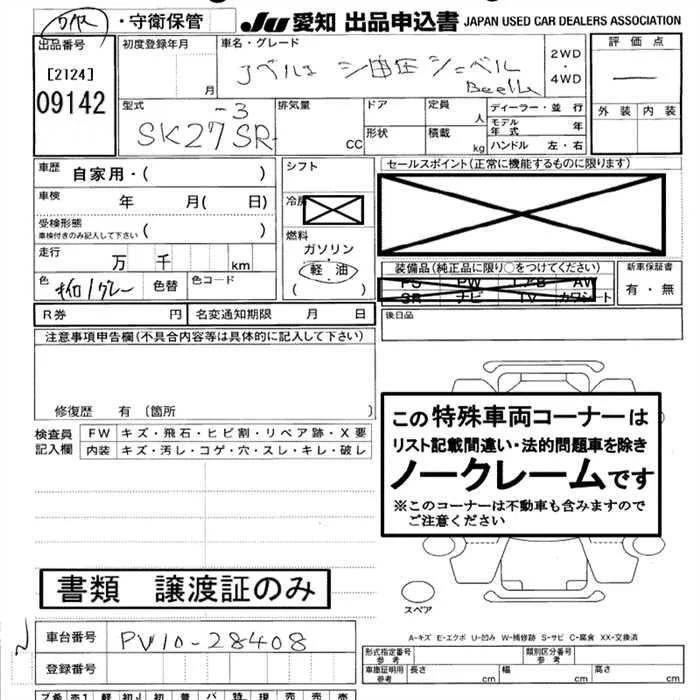 ・守衛保管
JU 愛知 出品申込書 JAPAN USED CAR DEALERS ASSOCIATION
出品番号
[2124]
09142
初度登録年月
月
車名・グレード
コベルコ 油圧ショベル
Beetle
2WD
・
4WD
評価点
外装 内装
型式
SK27SR-3
排気量
CC
ドア
形状
定員
人
積載
kg
ディーラー・並 行
モデル年式 年
ハンドル 左・右
車歴
自家用・( )
車検
年 月( 日)
受検形態
車検付きのみ記入して下さい ( )
走行
万 千 km
色
色替
色コード
シフト
冷房
燃料
ガソリン・
軽・油
( )
セールスポイント(正常に機能するものに限ります)
装備品(純正品に限り○をつけてください)
PS PW エアB AW
SR ナビ TV カワシート
新車保証書
有・無
後日品
R券 円
名変通知期限 月 日
注意事項申告欄(不具合内容等は具体的に記入して下さい)
修復歴 有〔箇所 〕
検査員記入欄
FW キズ・飛石・ヒビ割・リペア跡・X要
内装 キズ・汚レ・コゲ・穴・スレ・キレ・破レ
この特殊車両コーナーは
リスト記載間違い・法的問題車を除き
ノークレームです
※このコーナーは不動車も含みますので
ご注意ください
書類 譲渡証のみ
スペア
A-キズ E-エクボ U-凹み W-補修跡 S-サビ C-腐食 XX-交換済
車台番号
PV10-28408
登録番号
型式指定番号
参考
類別区分番号
参考
車庫証明用
参考
長さ cm 幅 cm 高さ cm